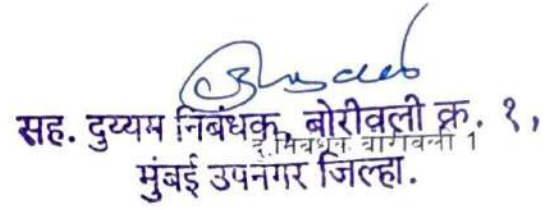 सह. दुय्यम निबंधक, बोरीवली क्र. १,
दु.निबंधक बोरीवली 1
मुंबई उपनगर जिल्हा.